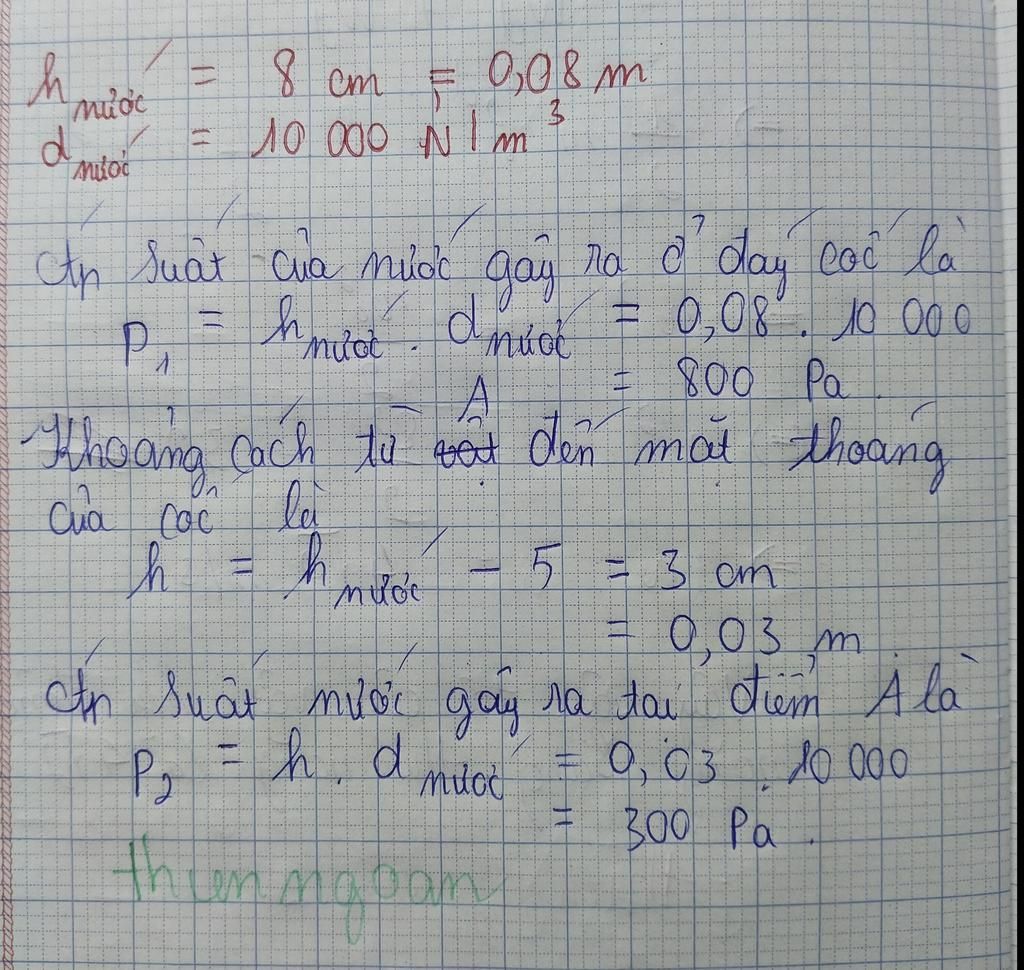 h nước = 8 cm = 0,08 m
d nước = 10 000 N/m³
Áp suất của nước gây ra ở đáy cốc là
P₁ = h nước . d nước = 0,08 . 10 000
= 800 Pa.
Khoảng cách từ A đến mặt thoáng
của cốc là
h = h nước - 5 = 3 cm
= 0,03 m
Áp suất nước gây ra tại điểm A là
P₂ = h . d nước = 0,03 . 10 000
= 300 Pa.
thienngoan